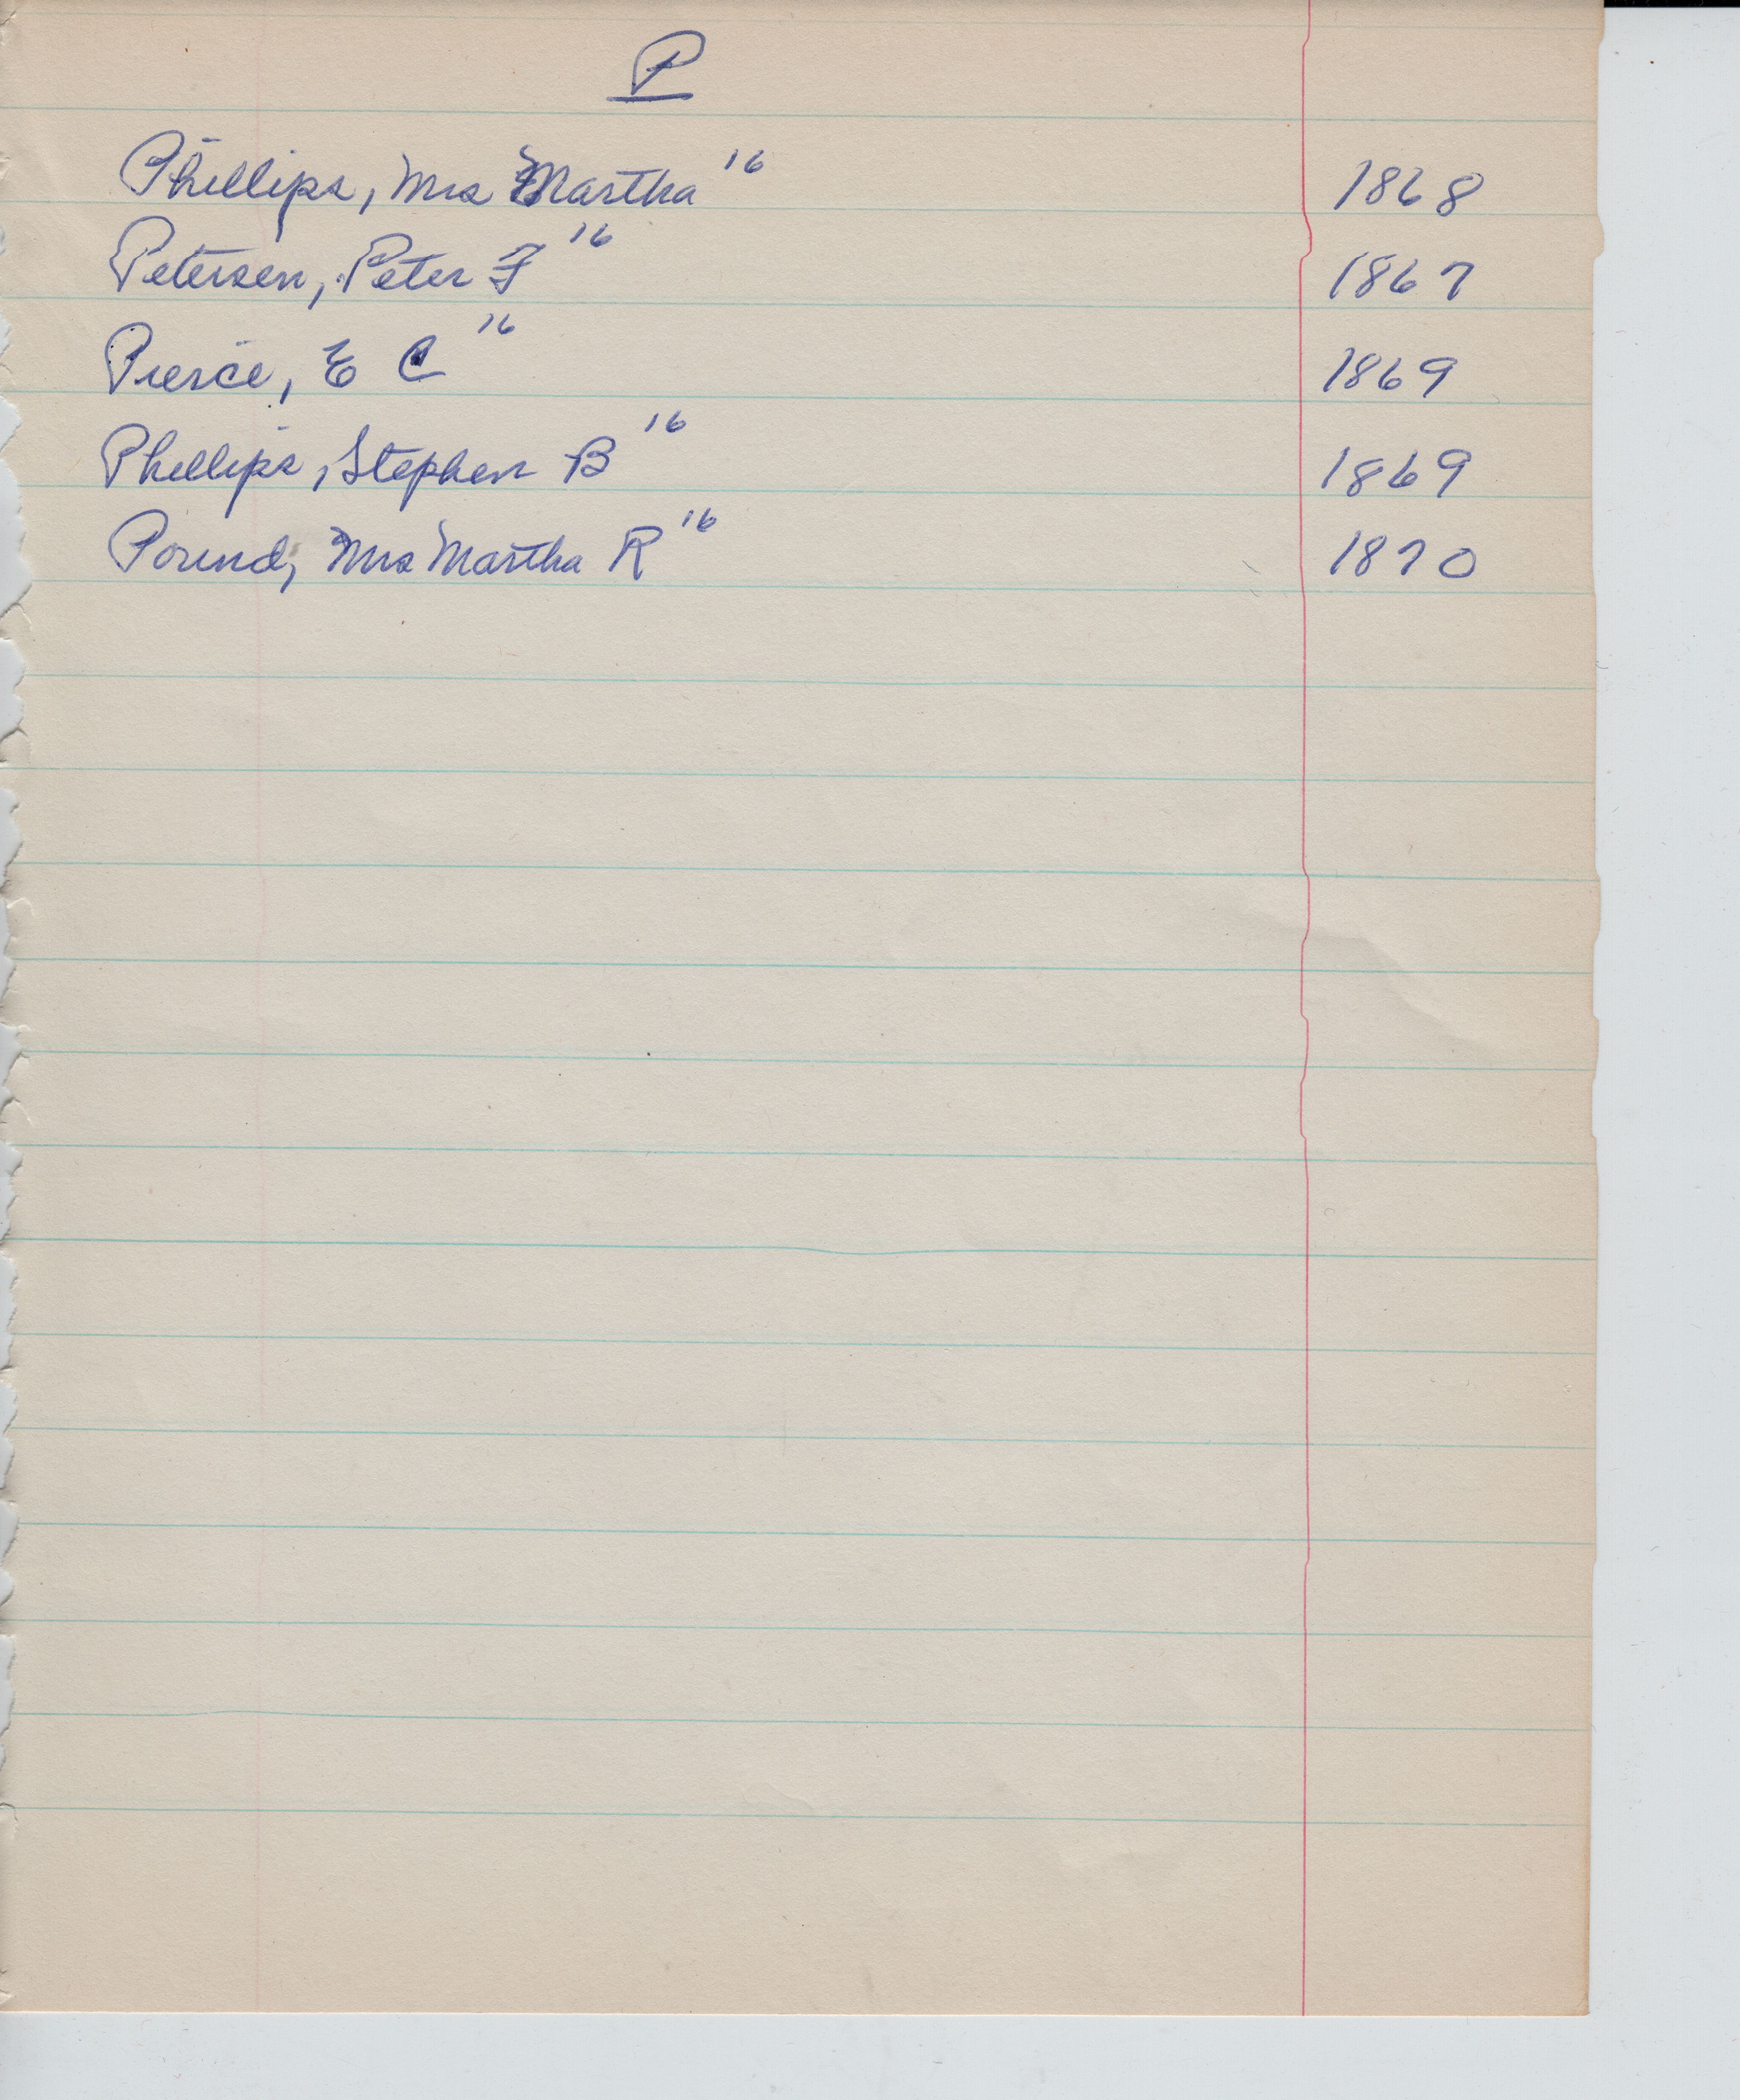 P
Phillips, Mrs Martha 16 1868
Petersen, Peter F 16 1867
Pierce, E C 16 1869
Phillips, Stephen B 16 1869
Pound, Mrs Martha R 16 1870